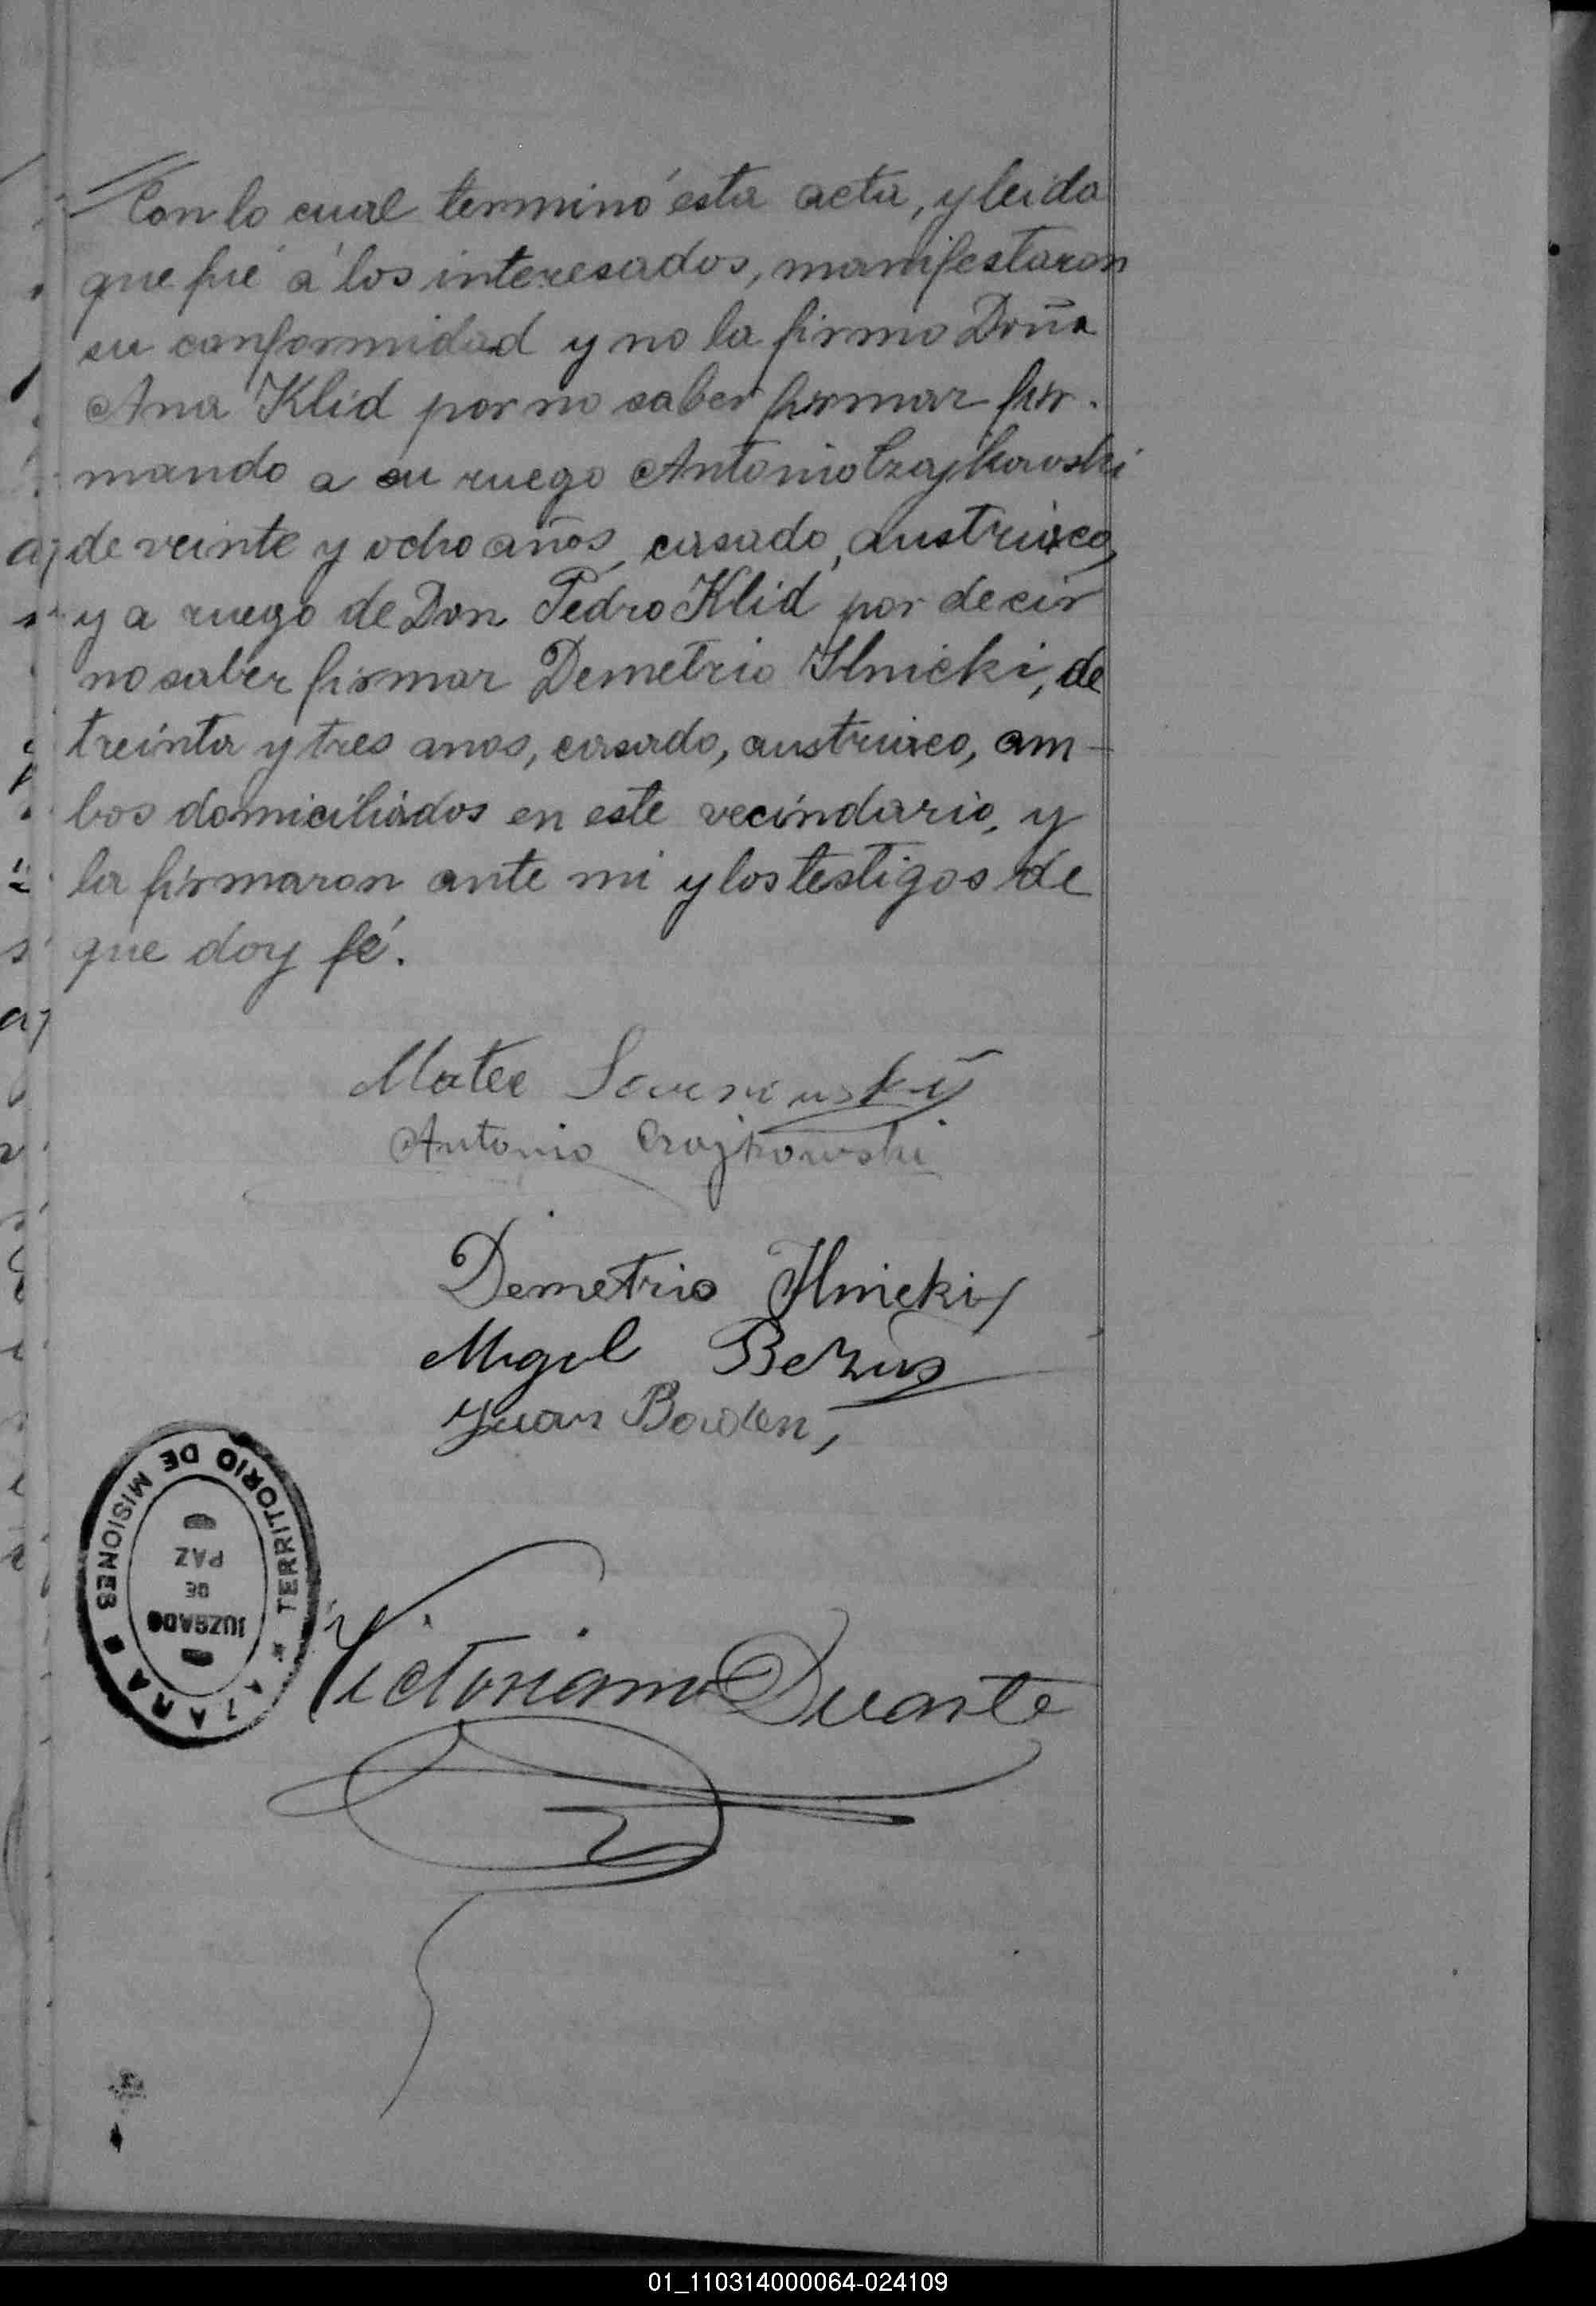 Con lo cual terminó esta acta, y leida
que fué á los interesados, manifestaron
su conformidad y no la firmo Doña
Ana Klid por no saber firmar fir-
mando a su ruego Antonio Czajkowski
de veinte y ocho años, casado, austriaco,
y a ruego de Don Pedro Klid por decir
no saber firmar Demetrio Ilnicki, de
treinta y tres anos, casado, austriaco, am-
bos domiciliados en este vecindario, y
la firmaron ante mi y los testigos de
que doy fé.
Mateo
Antonio Czajkowski
Demetrio Ilnicki
Miguel Bezus
Juan
TERRITORIO DE MISIONES
AZARA
JUZGADO
DE
PAZ
Victoriano Duarte
01_110314000064-024109